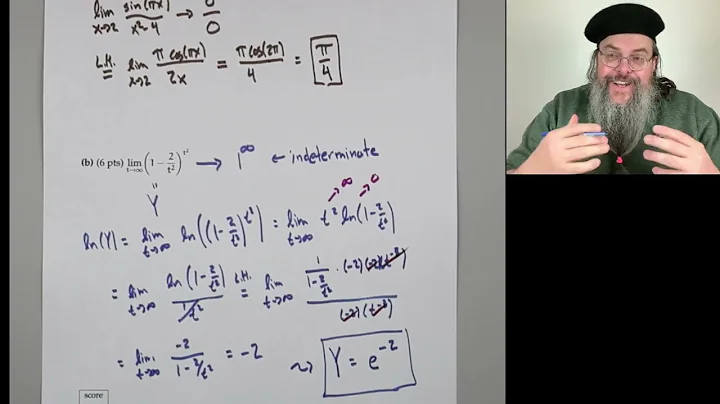 lim x→2 sin(πx)/x²-4 → 0/0
L.H. = lim x→2 π cos(πx)/2x = π cos(2π)/4 = π/4
(b) (6 pts) lim t→∞ (1 - 2/t²)^t² → 1^∞ ← indeterminate
"
Y
∞ 0
ln(Y) = lim t→∞ ln((1-2/t²)^t²) = lim t→∞ t² ln(1-2/t²)
= lim t→∞ ln(1-2/t²)/(1/t²) L.H. = lim t→∞ (1/(1-2/t²) · (-2)(-2)(t⁻³))/((-2)(t⁻³))
= lim t→∞ -2/(1-2/t²) = -2 ⇝ Y = e⁻²
score